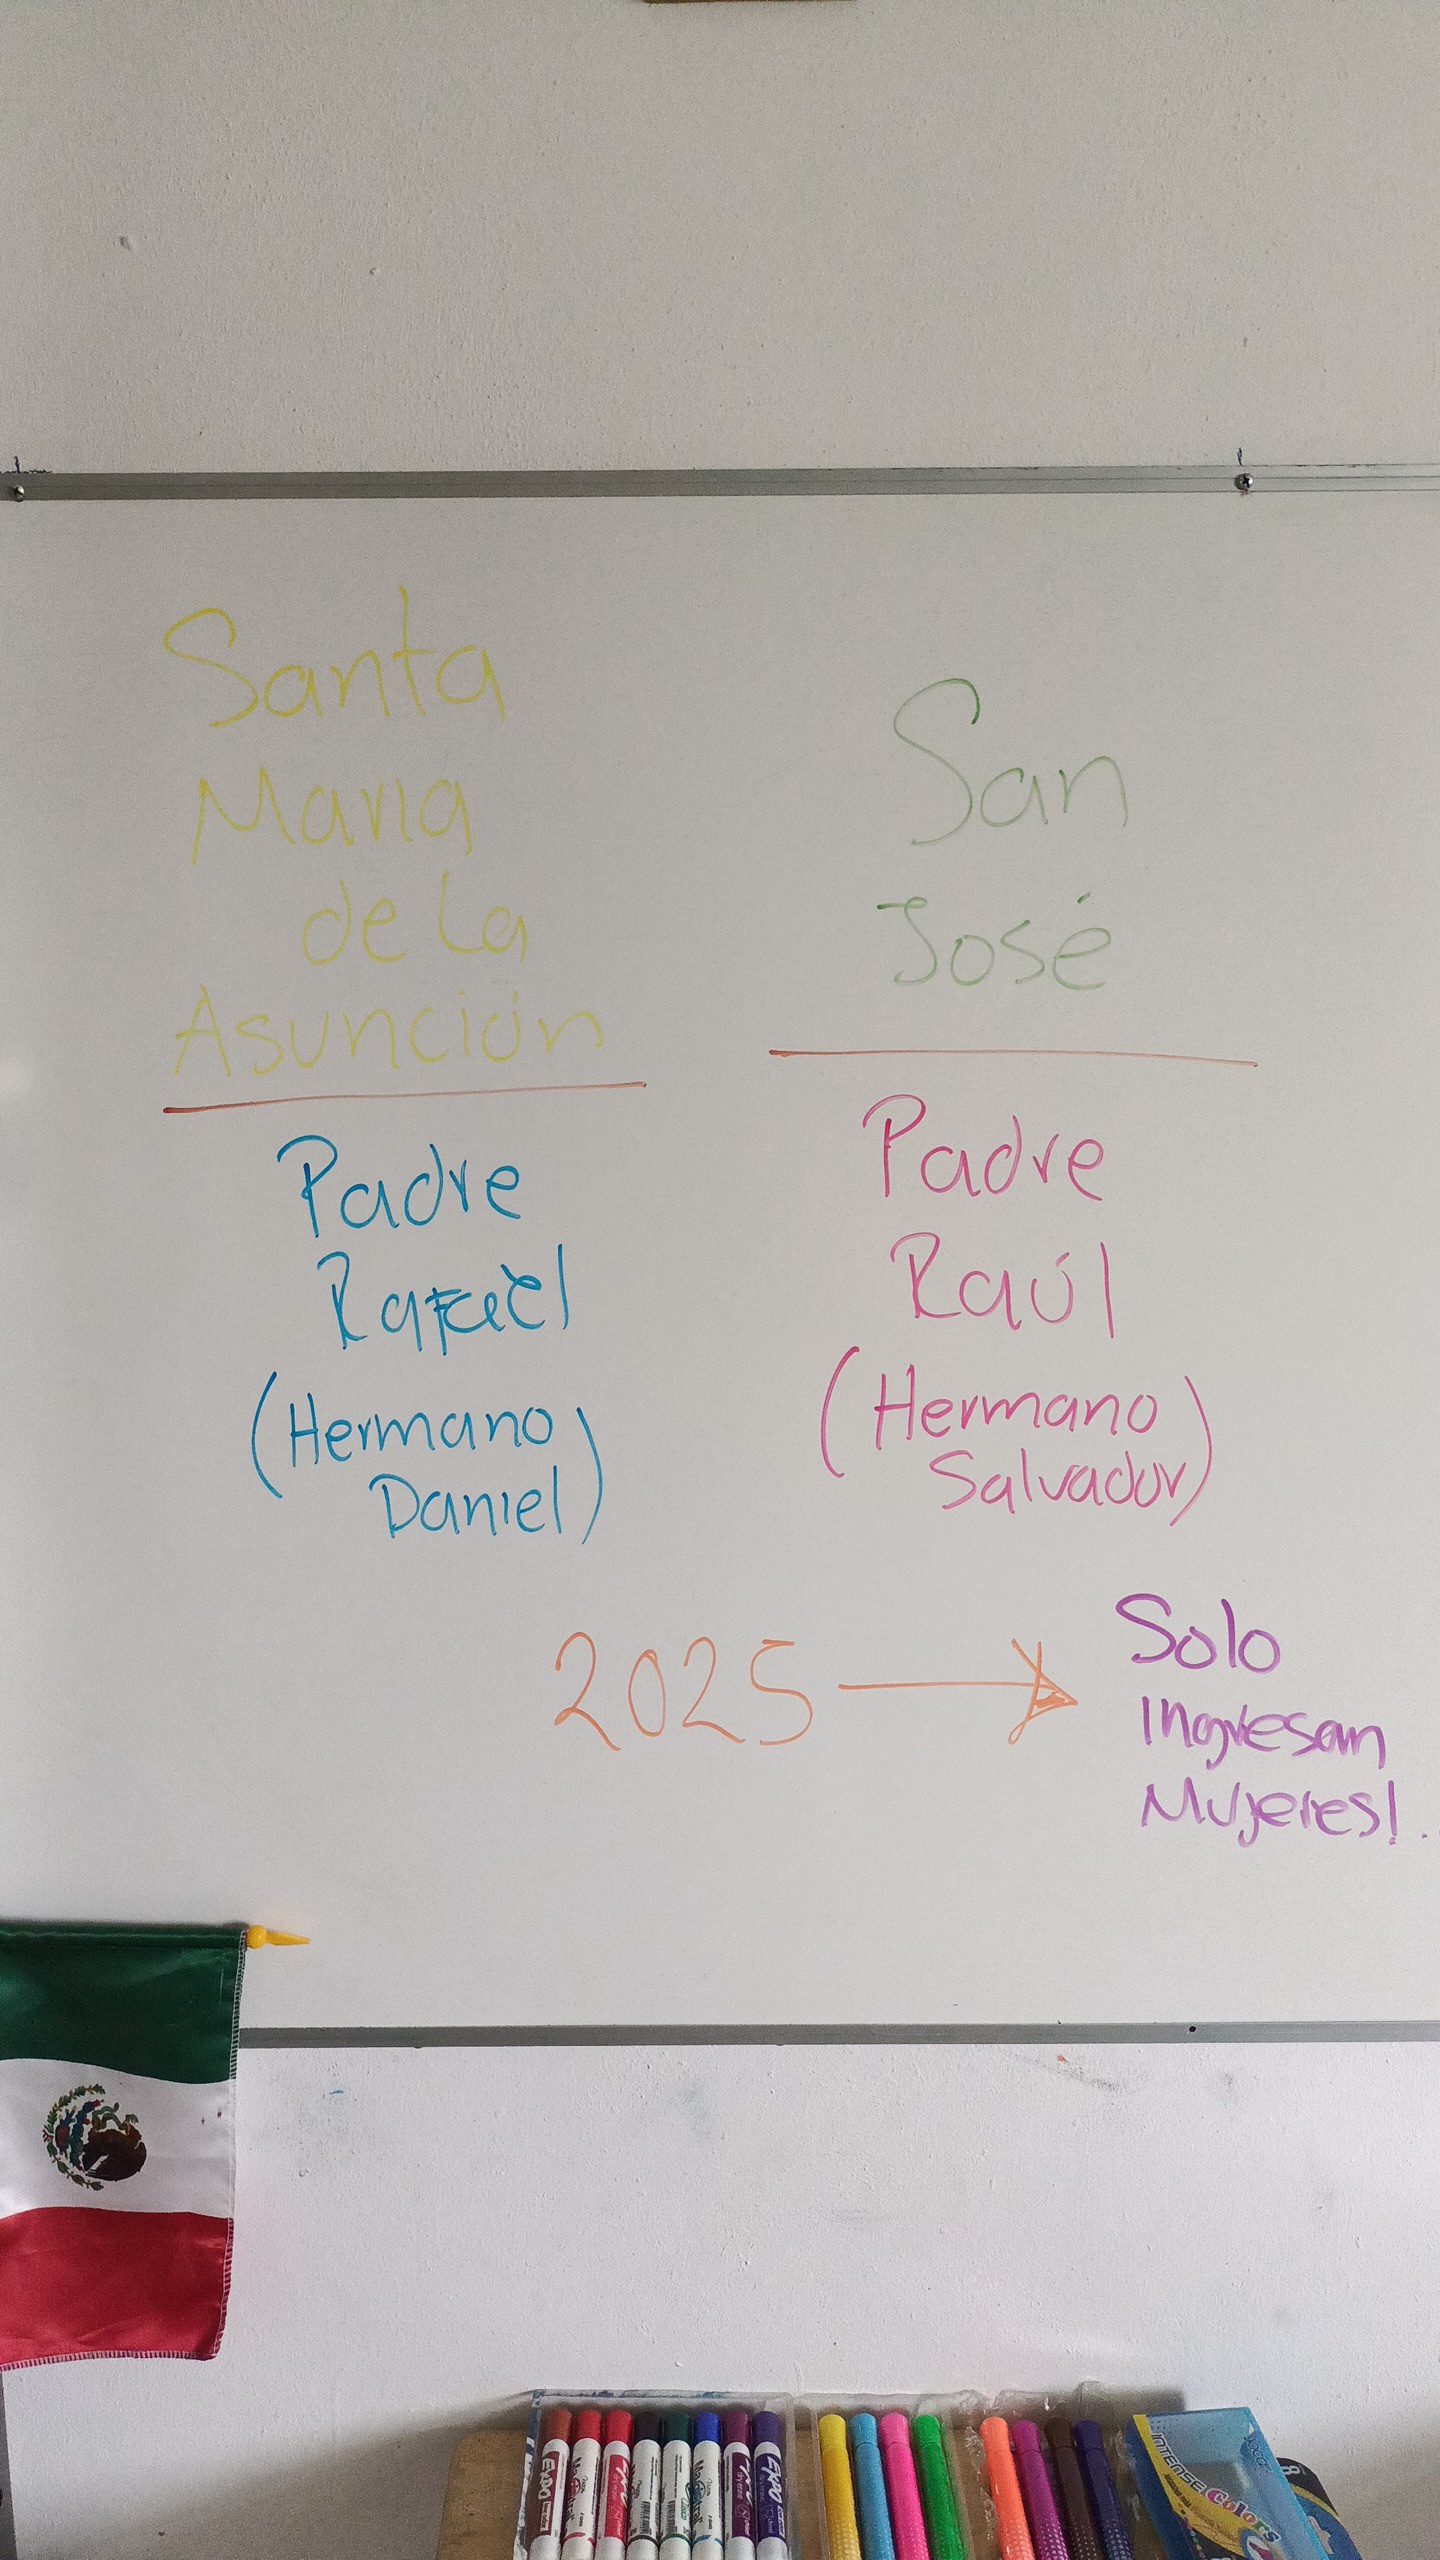 Santa
Maria
de la
Asunción
Padre
Rafael
(Hermano
Daniel)
San
José
Padre
Raúl
(Hermano
Salvador)
2025
Solo
Ingresan
Mujeres!
EXPO
EXPO
INTENSE Colors